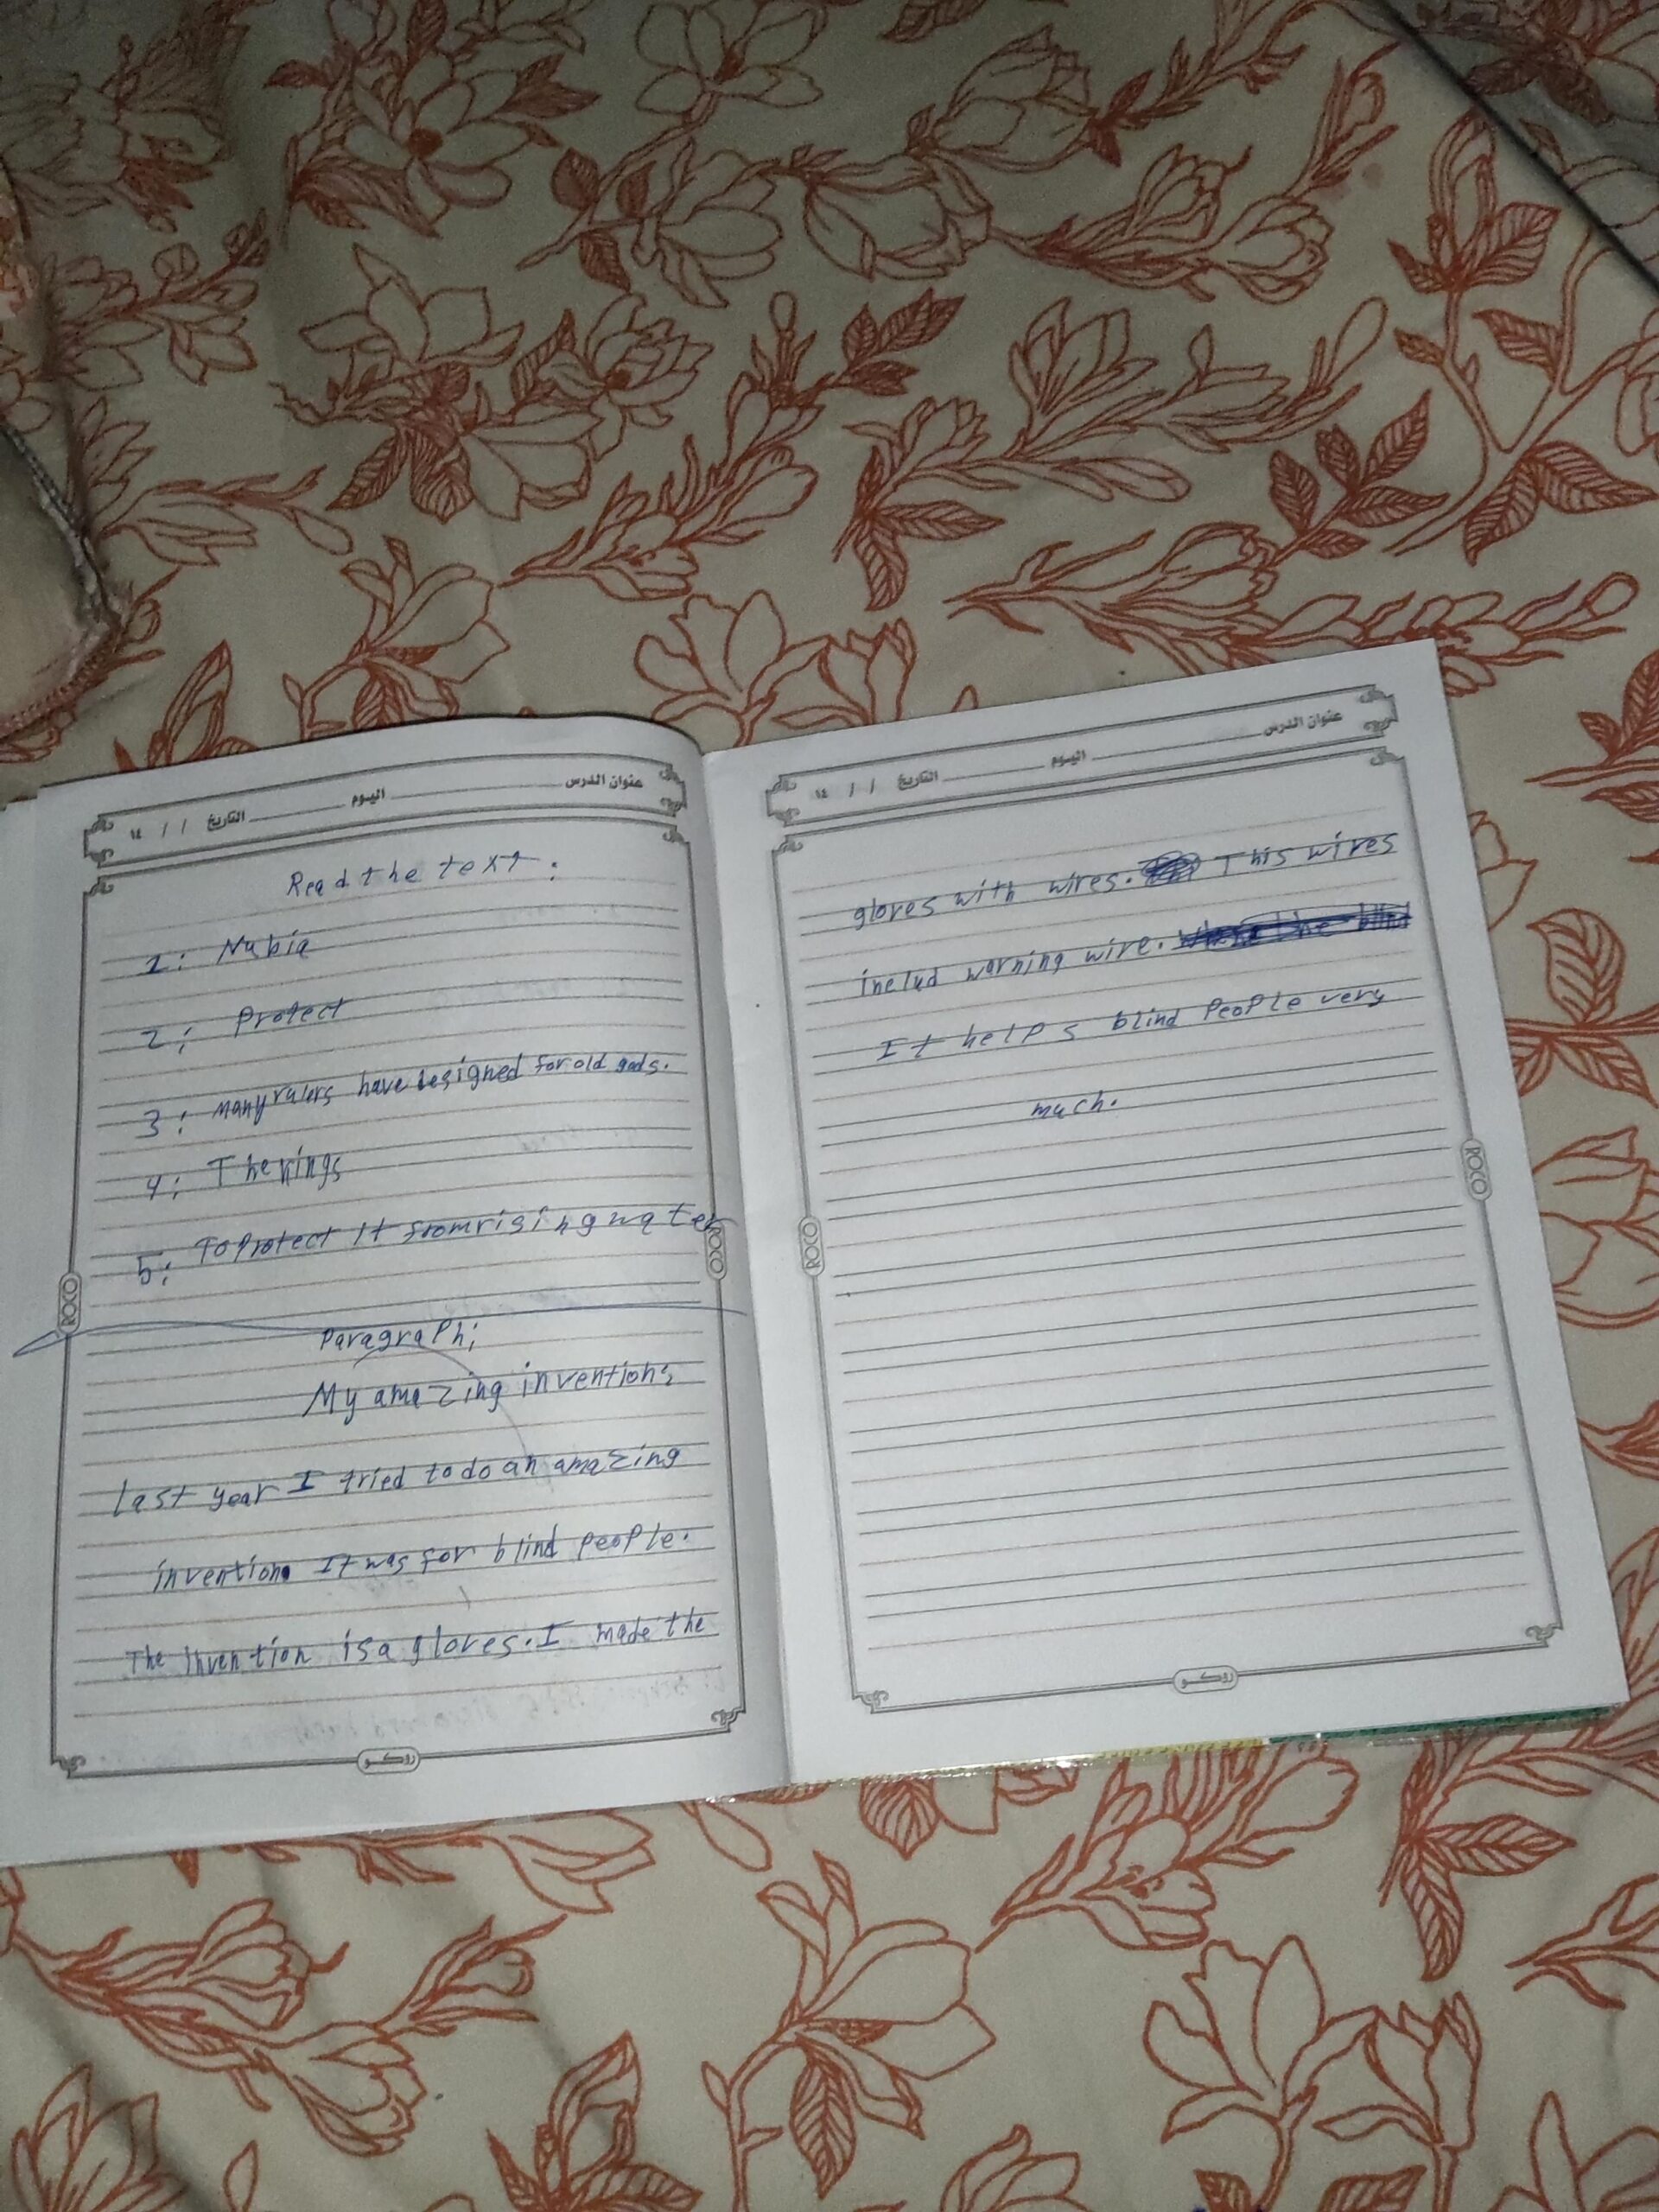 عنوان الدرس اليوم التاريخ / / ١٤
Read the text:
1: Nubia
2: Protect
3: many rulers have designed for old gods.
4: The kings
5: To protect it from rising water
Paragraph:
My amazing invention:
last year I tried to do an amazing
invention. It was for blind people.
The invention is a gloves. I made the
ROCO
ROCO
روكو
عنوان الدرس اليوم التاريخ / / ١٤
gloves with wires. This wires
includ warning wire.
It helps blind people very
much.
ROCO
ROCO
روكو